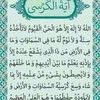 آية الكرسي
اللَّهُ لَا إِلَهَ إِلَّا هُوَ الْحَيُّ الْقَيُّومُ لَا تَأْخُذُهُ
سِنَةٌ وَلَا نَوْمٌ لَهُ مَا فِي السَّمَاوَاتِ وَمَا
فِي الْأَرْضِ مَنْ ذَا الَّذِي يَشْفَعُ عِنْدَهُ إِلَّا
بِإِذْنِهِ يَعْلَمُ مَا بَيْنَ أَيْدِيهِمْ وَمَا خَلْفَهُمْ
وَلَا يُحِيطُونَ بِشَيْءٍ مِنْ عِلْمِهِ إِلَّا بِمَا
شَاءَ وَسِعَ كُرْسِيُّهُ السَّمَاوَاتِ وَالْأَرْضَ
وَلَا يَئُودُهُ حِفْظُهُمَا وَهُوَ الْعَلِيُّ الْعَظِيمُ